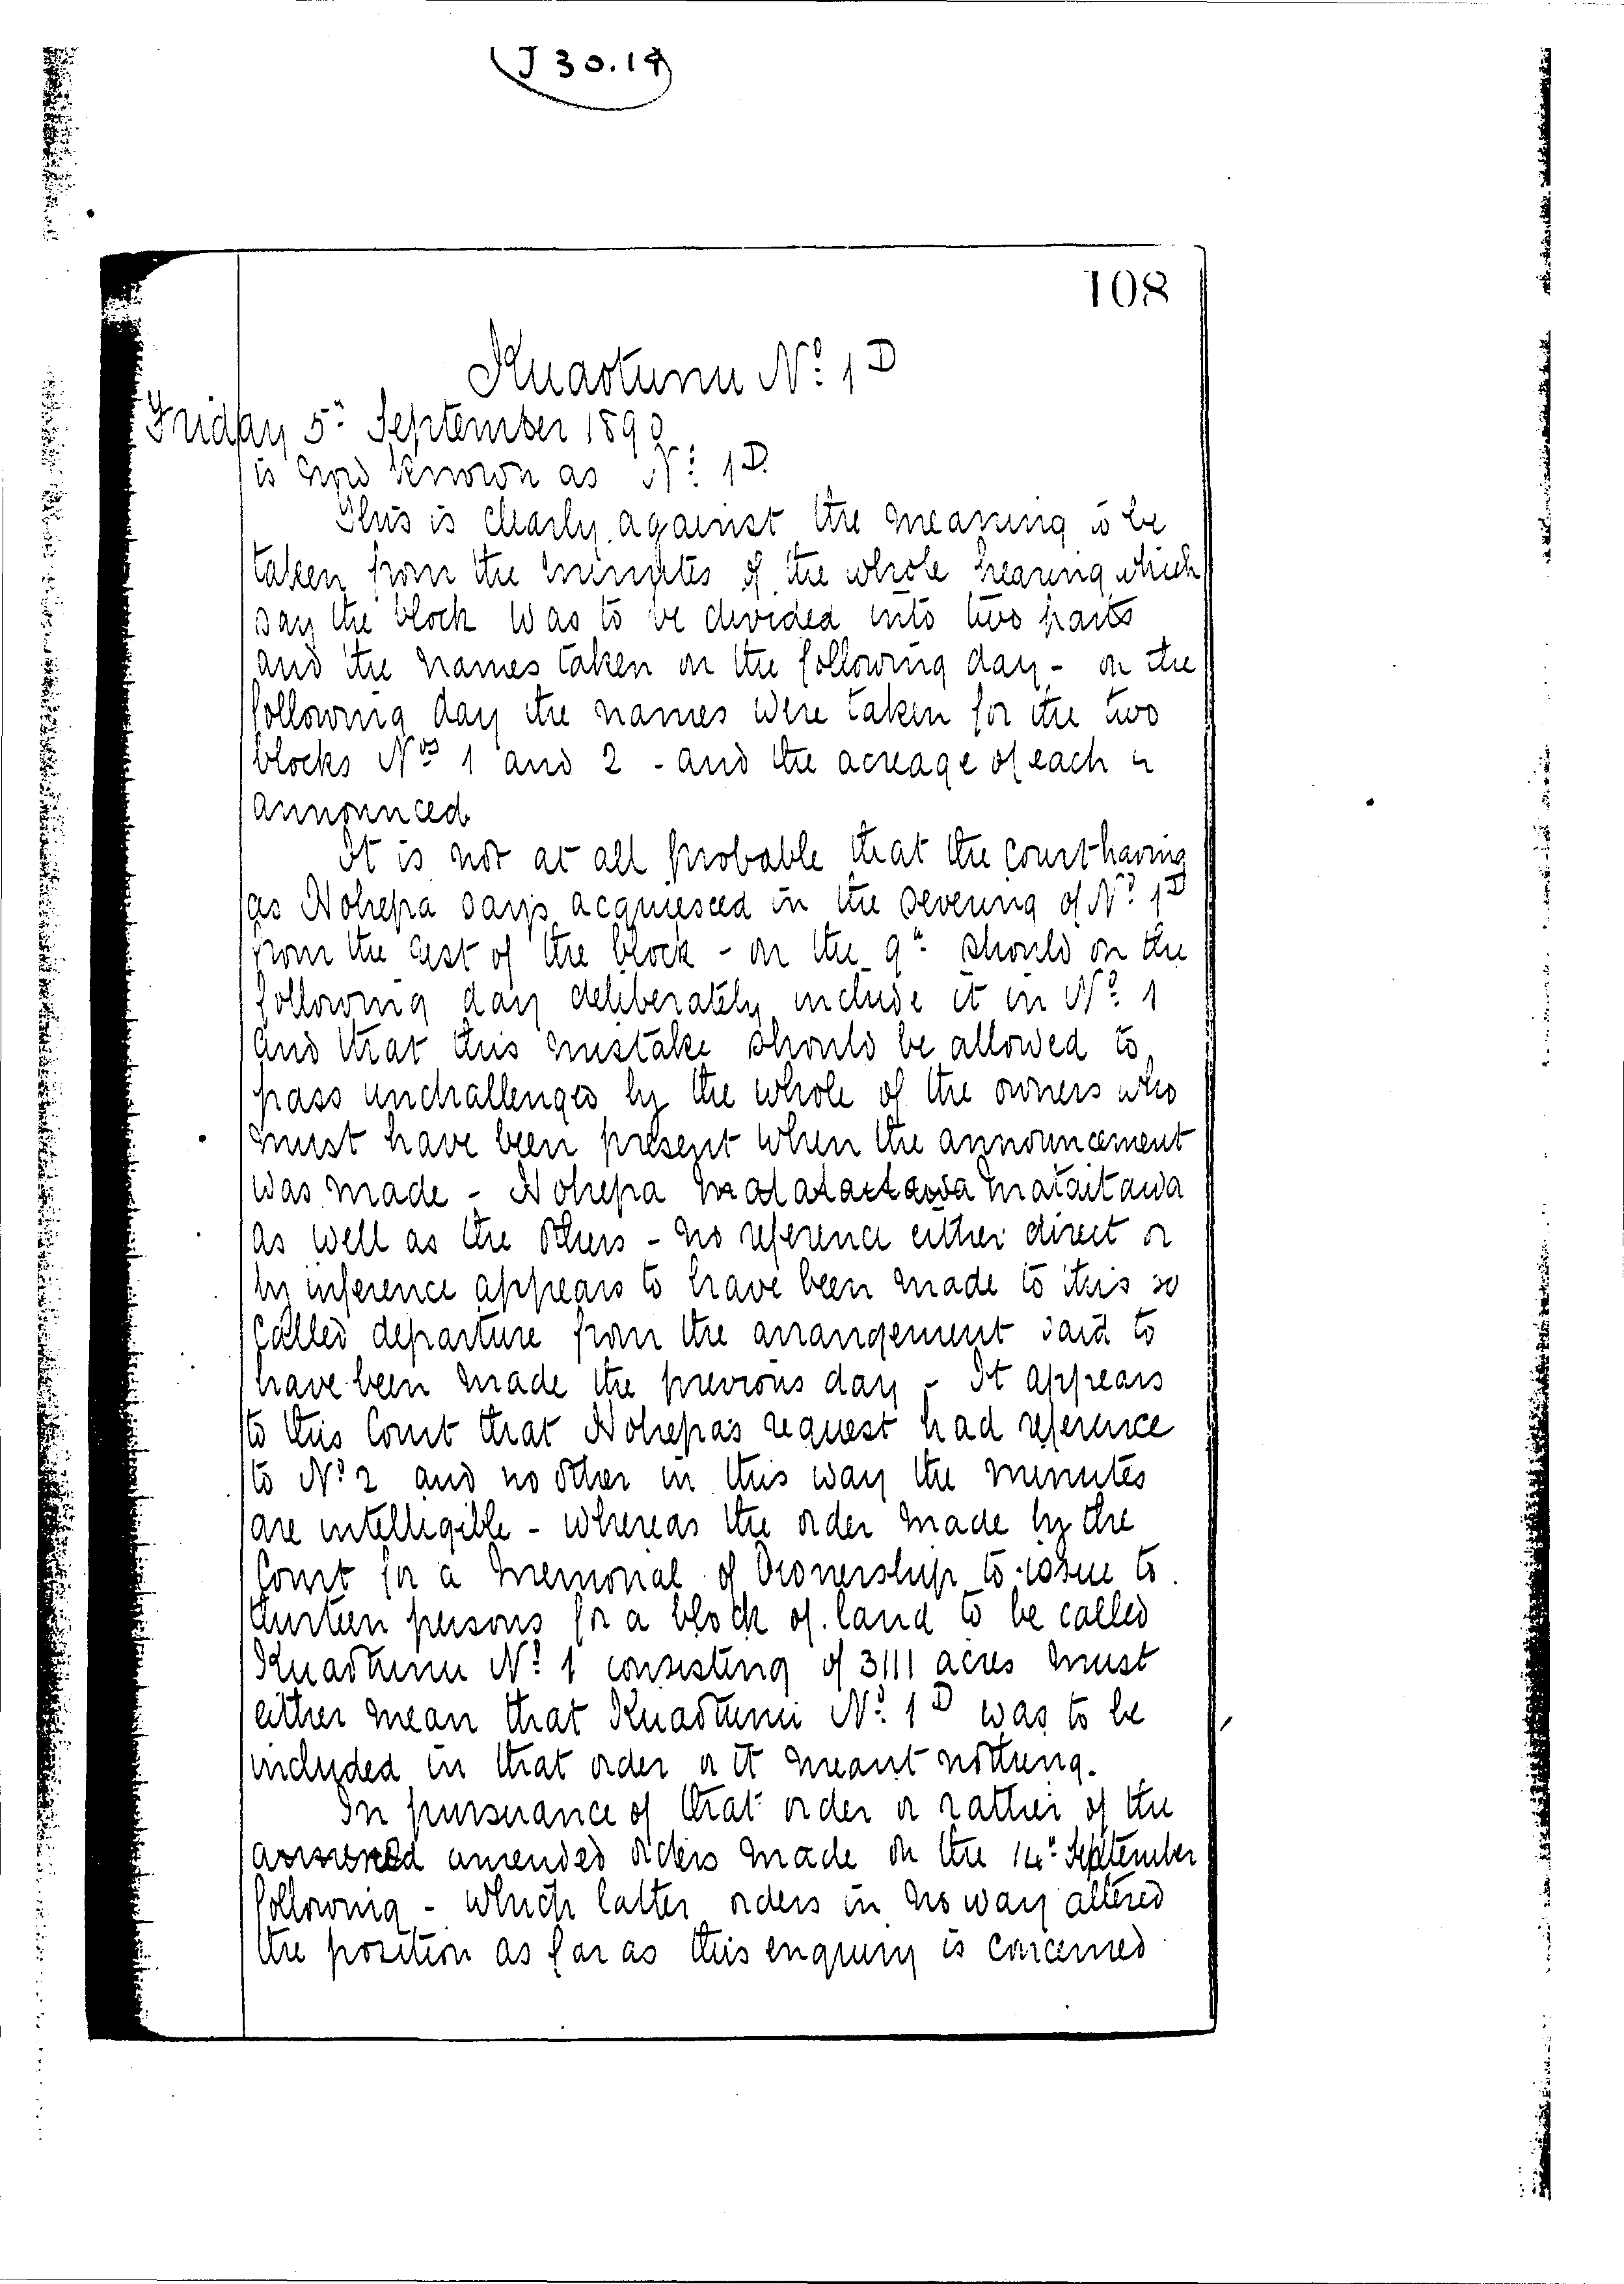 J 30.19
108
Kuaotunu No. 1D
Friday 5th September 1890
is now known as No. 1D.
This is clearly against the meaning to be
taken from the minutes of the whole hearing which
say the block was to be divided into two parts
and the names taken on the following day - on the
following day the names were taken for the two
blocks Nos 1 and 2 - and the acreage of each is
announced
It is not at all probable that the court having
as Nohepa says acquiesced in the severing of No. 1D
from the rest of the block - on the 9th should on the
following day deliberately include it in No. 1
and that this mistake should be allowed to
pass unchallenged by the whole of the owners who
must have been present when the announcement
was made - Nohepa Mataitawa
as well as the others - no reference either direct or
by inference appears to have been made to this so
called departure from the arrangement said to
have been made the previous day - It appears
to this Court that Nohepa's request had reference
to No. 2 and no other in this way the minutes
are intelligible - whereas the order made by the
Court for a Memorial of Ownership to issue to
thirteen persons for a block of land to be called
Kuaotunu No. 1 consisting of 3111 acres must
either mean that Kuaotunu No. 1D was to be
included in that order or it meant nothing.
In pursuance of that order or rather of the
amended orders made on the 14th September
following - which latter orders in no way altered
the position as far as this enquiry is concerned